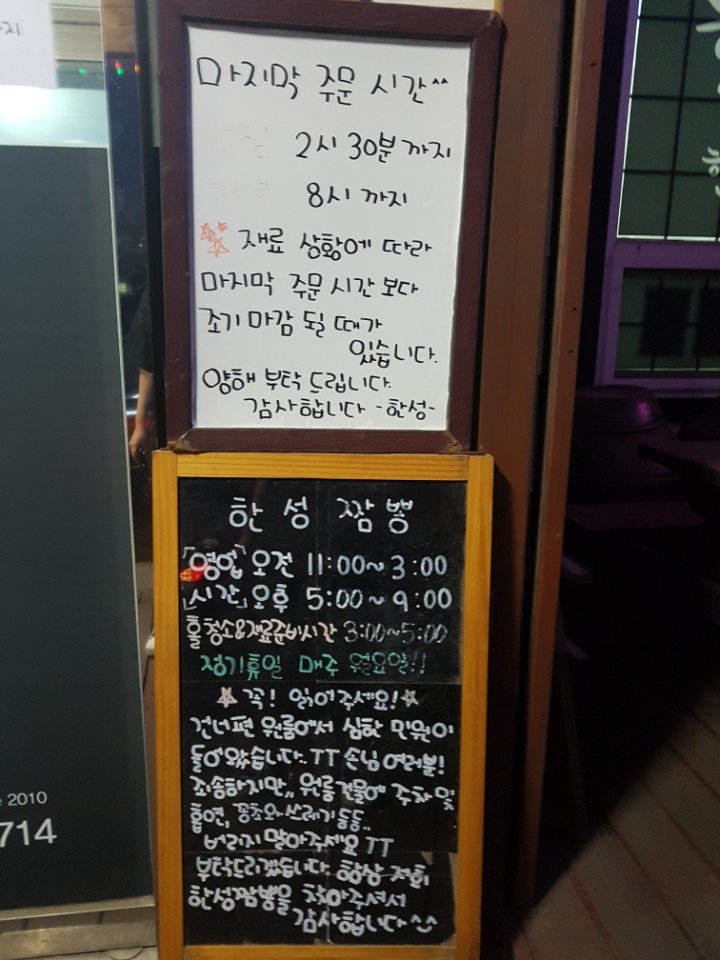 지
마지막 주문 시간^^
점심 2시 30분 까지
8시 까지
재료 상황에 따라
마지막 주문 시간 보다
조기 마감 될 때가
있습니다.
양해 부탁 드립니다.
감사합니다 -한성-
한 성 짬 뽕
「영업 오전 11:00~3:00
시간」 오후 5:00~9:00
홀청소&재료준비시간 3:00~5:00
정기휴일 매주 월요일!!
☆꼭! 읽어주세요!☆
건너편 원룸에서 심한 민원이
들어왔습니다..TT 손님 여러분!
죄송하지만,, 원룸건물에 주차 및
흡연, 꽁초와 쓰레기 등등..
버리지 말아주세요 TT
부탁드리겠습니다. 항상 저희
한성짬뽕을 찾아주셔서
감사합니다^^
2010
714